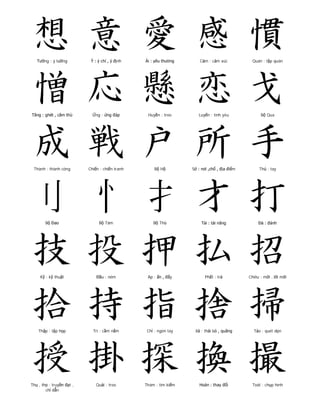 想 意 愛 感 慣
Tưởng : ý tưởng Ý : ý chí , ý định Ái : yêu thương Cảm : cảm xúc Quán : tập quán
憎 応 懸 恋 戈
Tăng : ghét , căm thù Ứng : ứng đáp Huyền : treo Luyến : tình yêu Bộ Qua
成 戦 户 所 手
Thành : thành công Chiến : chiến tranh Bộ Hộ Sở : nơi ,chỗ , địa điểm Thủ : tay
刂 忄 扌 才 打
Bộ Đao Bộ Tâm Bộ Thủ Tài : tài năng Đả : đánh
技 投 押 払 招
Kỹ : kỹ thuật Đầu : ném Áp : ấn , đẩy Phất : trả Chiêu : mời , lời mời
拾 持 指 捨 掃
Thập : tập hợp Trì : cầm nắm Chỉ : ngón tay Xả : thải bỏ , quăng Tảo : quét dọn
授 掛 探 換 撮
Thụ , thọ : truyền đạt , Quải : treo Thám : tìm kiếm Hoán : thay đổi Toát : chụp hình
chỉ dẫn